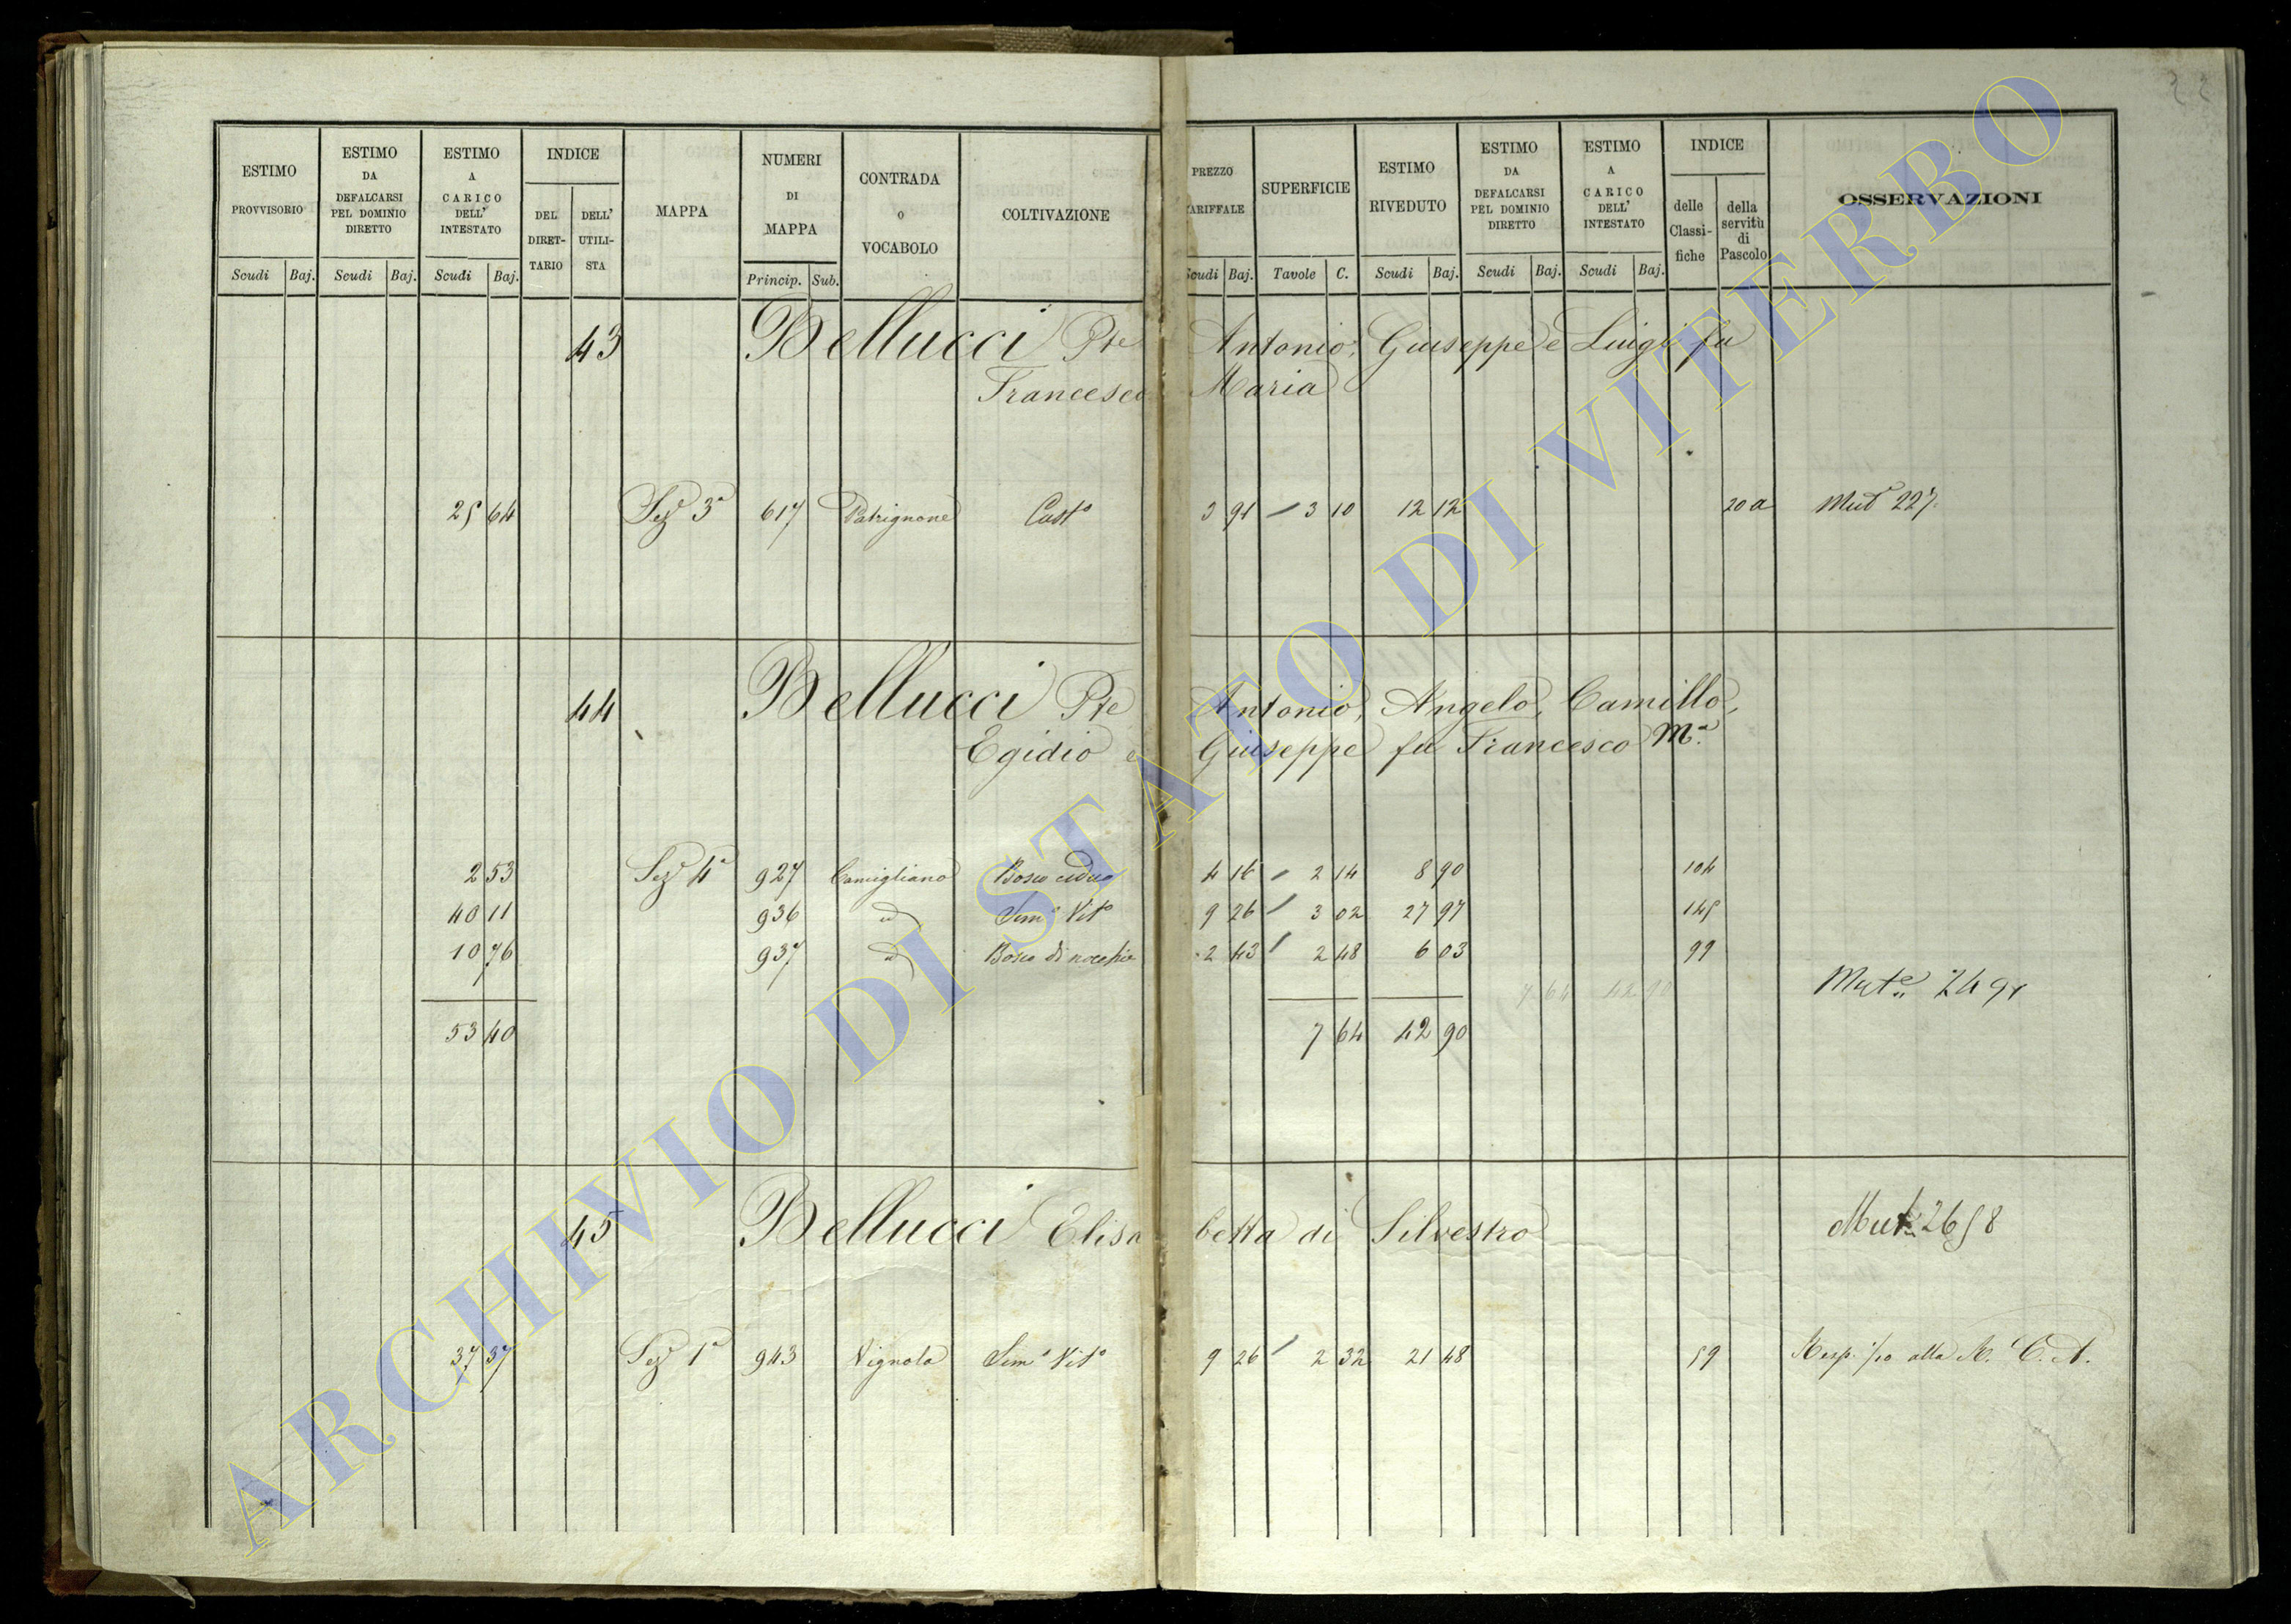 22
ESTIMO PROVVISORIO
ESTIMO DA DEFALCARSI PEL DOMINIO DIRETTO
ESTIMO A CARICO DELL' INTESTATO
INDICE
DEL DIRET-TARIO
DELL' UTILI-STA
MAPPA
NUMERI DI MAPPA
CONTRADA O VOCABOLO
COLTIVAZIONE
PREZZO TARIFFALE
SUPERFICIE
ESTIMO RIVEDUTO
ESTIMO DA DEFALCARSI PEL DOMINIO DIRETTO
ESTIMO A CARICO DELL' INTESTATO
INDICE
delle Classi-fiche
della servitù di Pascolo
OSSERVAZIONI
Scudi Baj. Scudi Baj. Scudi Baj. Princip. Sub. Scudi Baj. Tavole C. Scudi Baj. Scudi Baj. Scudi Baj.
43 Bellucci Pte Antonio, Giuseppe e Luigi fu
Francesco Maria
25 64 Sez.e 3a 617 Patrignone Casto 3 91 3 10 12 12 20 a Mut 227
44 Bellucci Pte Antonio, Angelo, Camillo,
Egidio e Giuseppe fu Francesco Ma.
2 53 Sez.e 4a 927 Camigliano Bosco ceduo 4 16 2 14 8 90 104
40 11 936 id Semo Vito 9 26 3 02 27 97 145
10 76 937 id Bosco di nocchie 2 43 2 48 6 03 99
7 64 42 90 Mute 2491
53 40 7 64 42 90
45 Bellucci Elisabetta di Silvestro Mut 2658
37 37 Sez.e 1a 943 Vignola Semo Vito 9 26 2 32 21 48 59 Resp. 1/10 alla R. C. A.
ARCHIVIO DI STATO DI VITERBO